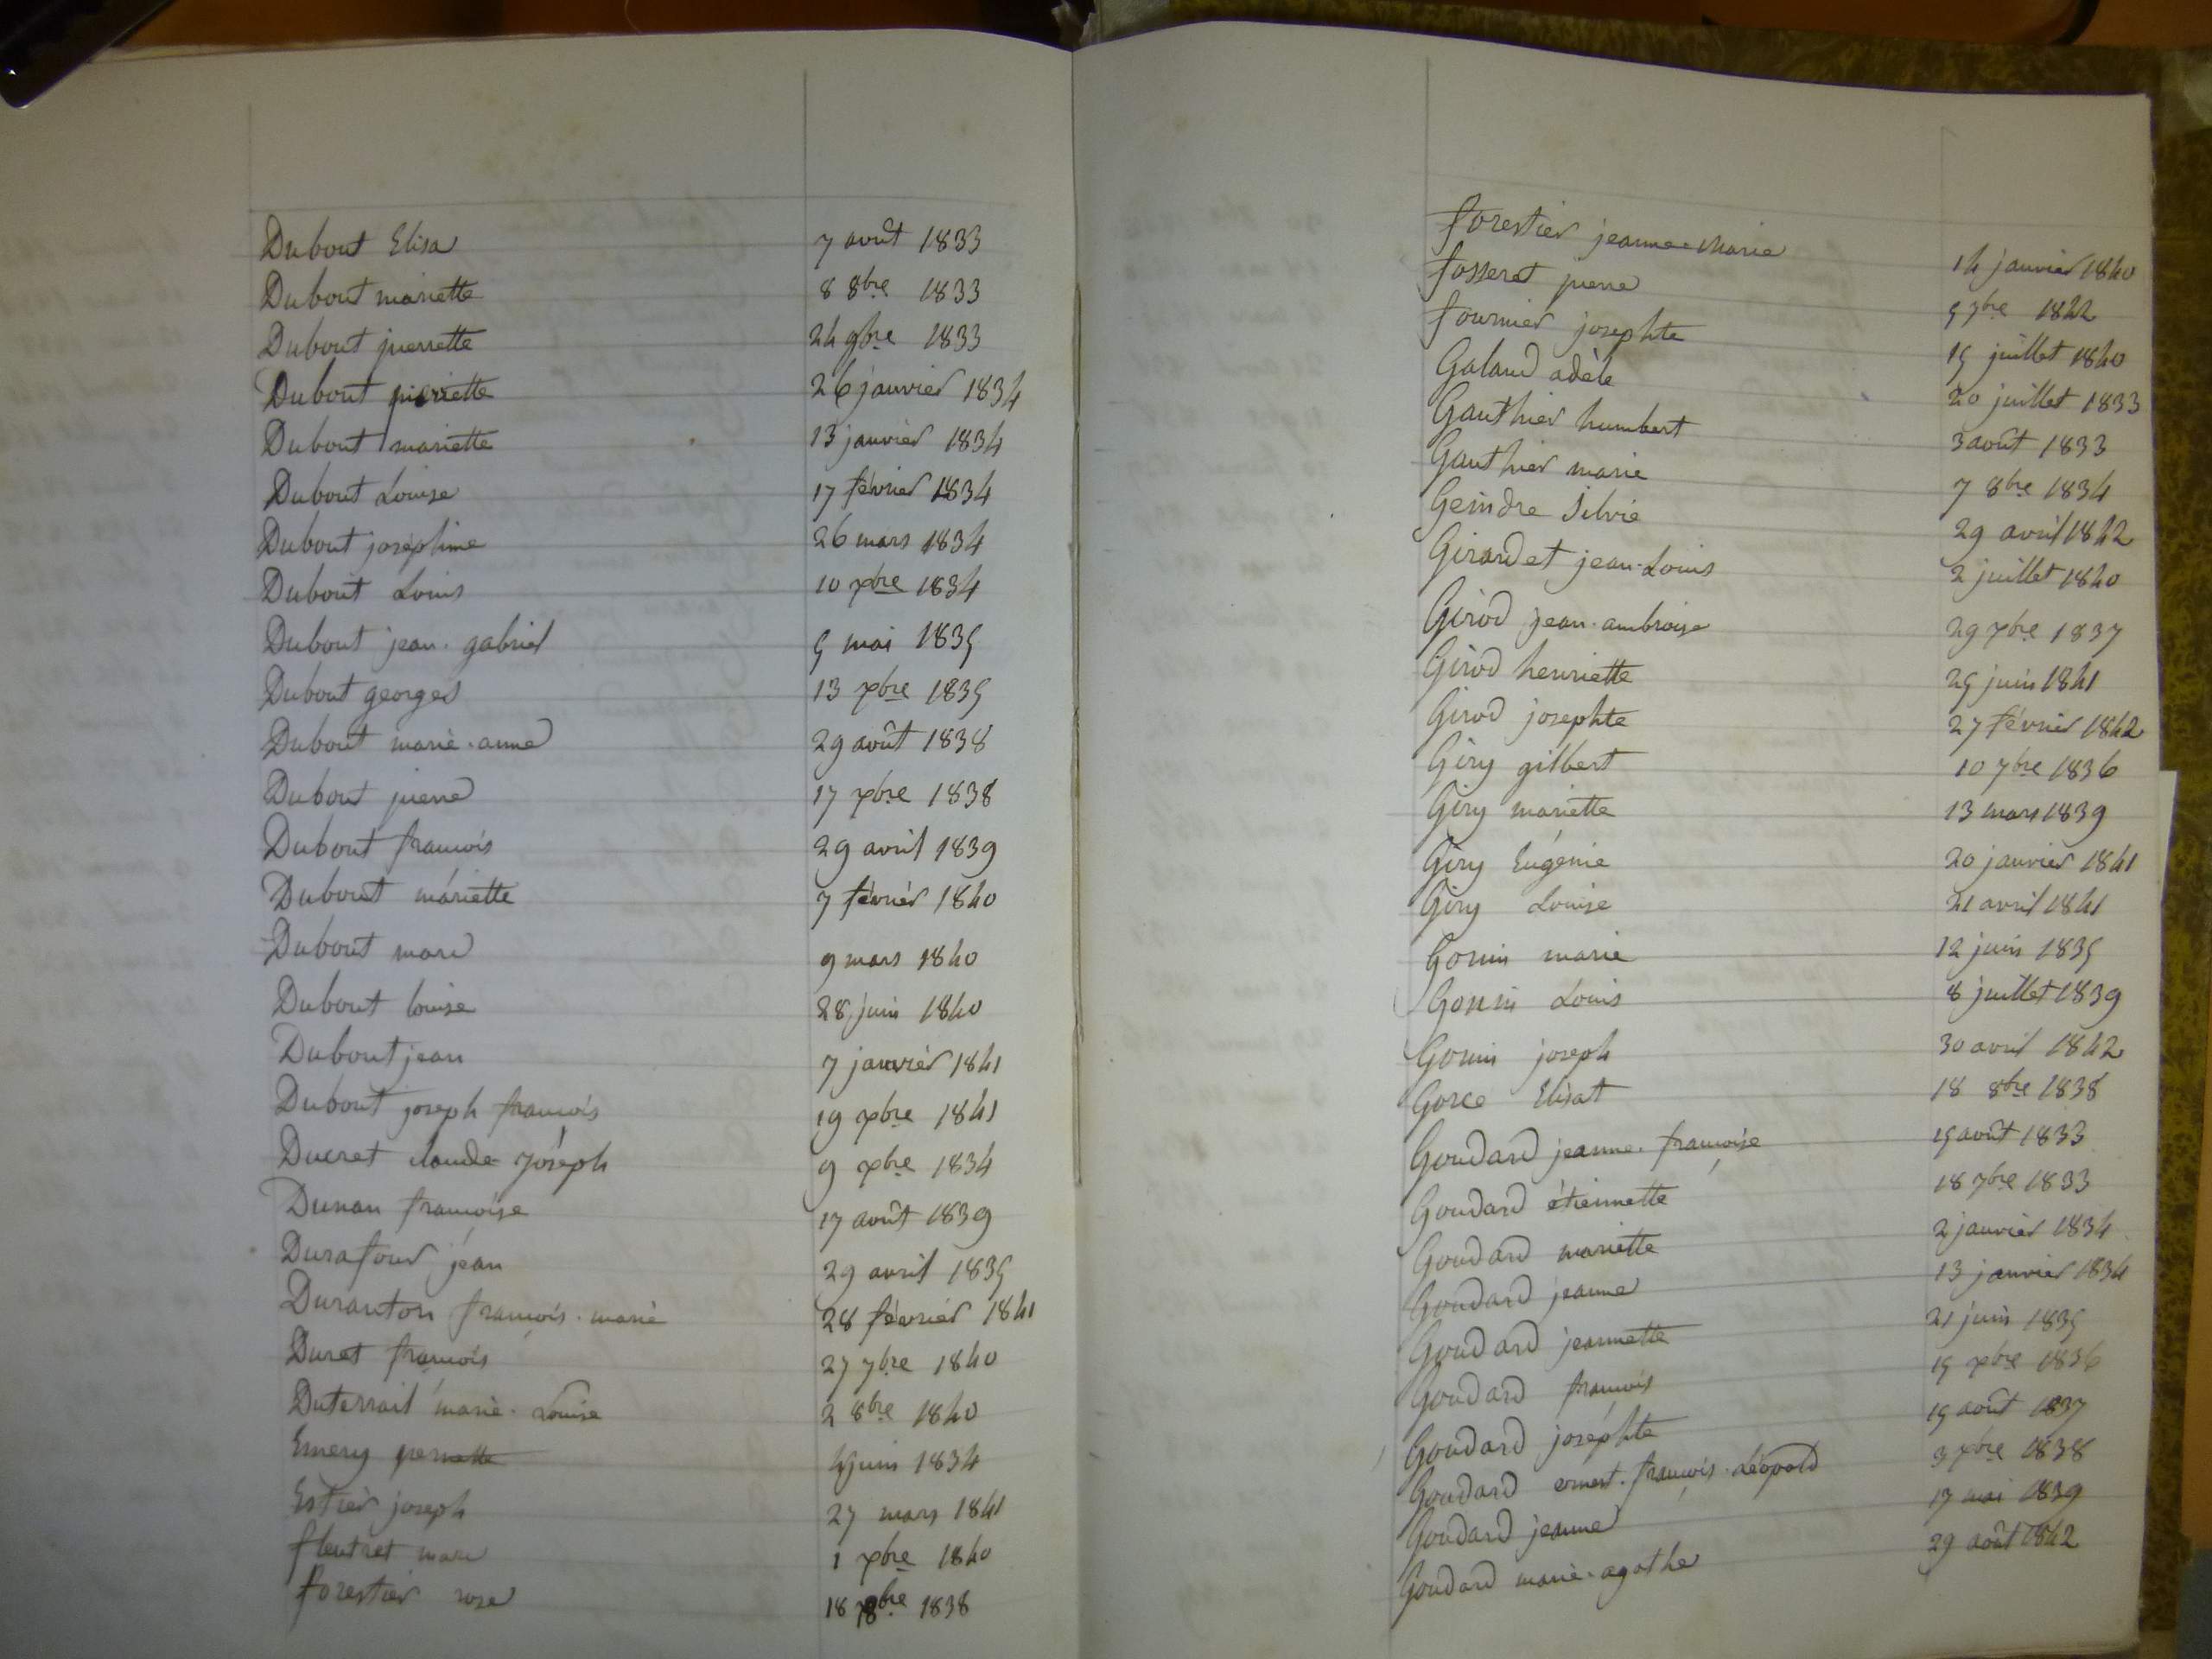 Dubout Elisa 7 août 1833
Dubout mariette 8 8bre 1833
Dubout pierrette 24 9bre 1833
Dubout pierrette 26 janvier 1834
Dubout mariette 13 janvier 1834
Dubout Louise 17 février 1834
Dubout joséphine 26 mars 1834
Dubout Louis 10 xbre 1834
Dubout jean-gabriel 5 mai 1835
Dubout georges 13 xbre 1835
Dubout marie-anne 29 août 1838
Dubout pierre 17 xbre 1838
Dubout francois 29 avril 1839
Dubout mariette 7 février 1840
Dubout marie 9 mars 1840
Dubout louise 28 juin 1840
Dubout jean 7 janvier 1841
Dubout joseph francois 19 xbre 1841
Ducret claude joseph 9 xbre 1834
Dunan francoise 17 août 1839
Durafour jean 29 avril 1835
Duranton francois-marie 28 février 1841
Duret francois 27 7bre 1840
Duterrail marie-Louise 2 8bre 1840
Emery pernette 4 juin 1834
Estier joseph 27 mars 1841
fleutret marie 1 xbre 1840
forestier rose 18 8bre 1838
forestier jeanne-marie 14 janvier 1840
fosseret pierre 5 7bre 1842
fournier josephte 15 juillet 1840
Galand adèle 20 juillet 1833
Gauthier humbert 3 août 1833
Gauthier marie 7 8bre 1834
Geindre Silvie 29 avril 1842
Girardet jean-Louis 2 juillet 1840
Girod jean-ambroise 29 xbre 1837
Girod henriette 25 juin 1841
Girod josephte 27 février 1842
Giry gilbert 10 7bre 1836
Giry mariette 13 mars 1839
Giry Eugénie 20 janvier 1841
Giry Louise 21 avril 1841
Gonin marie 12 juin 1835
Gonin Louis 8 juillet 1839
Gonin joseph 30 avril 1842
Gorce Elisat 18 8bre 1838
Goudard jeanne-francoise 15 août 1833
Goudard étiennette 18 7bre 1833
Goudard mariette 2 janvier 1834
Goudard jeanne 13 janvier 1834
Goudard jeannette 21 juin 1835
Goudard francois 15 xbre 1836
Goudard joséphte 15 août 1837
Goudard ernest-françois-Léopold 3 xbre 1838
Goudard jeanne 17 mai 1839
Goudard marie-agathe 29 août 1842